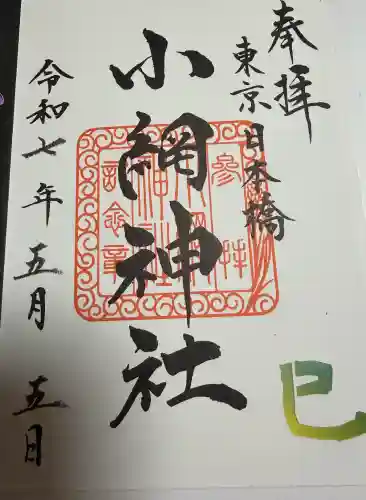 奉拝
東京日本橋
小網神社
参拝
小網神社
記念章
令和七年五月五日
巳